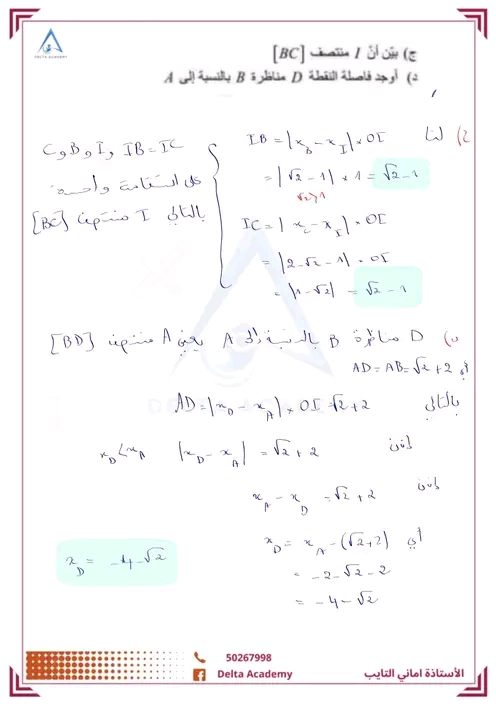 DELTA ACADEMY
ج) بيّن أنّ I منتصف [BC]
د) أوجد فاصلة النقطة D مناظرة B بالنسبة إلى A
ج) لنا IB = |x_B - x_I| × OI
= |√2 - 1| × 1 = √2 - 1
√2 > 1
IC = | x_C - x_I | × OI
= |2 - √2 - 1| × OI
= |1 - √2| = √2 - 1
IB = IC و I و B و C
على استقامة واحدة
بالتالي I منتصف [BC]
د) D مناظرة B بالنسبة إلى A يعني A منتصف [BD]
أي AD = AB = √2 + 2
بالتالي AD = |x_D - x_A| × OI = √2 + 2
إذن |x_D - x_A| = √2 + 2 x_D < x_A
إذن x_A - x_D = √2 + 2
أي x_D = x_A - (√2 + 2)
= -2 - √2 - 2
= -4 - √2
x_D = -4 - √2
50267998
Delta Academy
الأستاذة اماني التايب